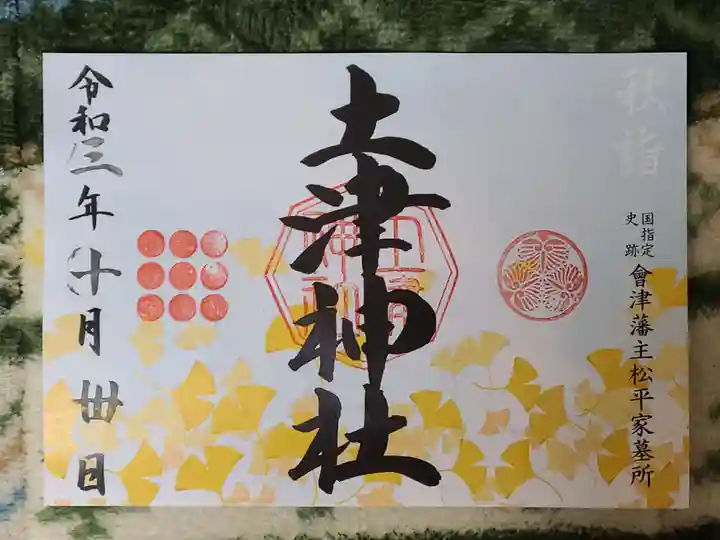 秋詣
国指定
史跡
會津藩主松平家墓所
土津神社
土津
神社
令和三年十月丗日